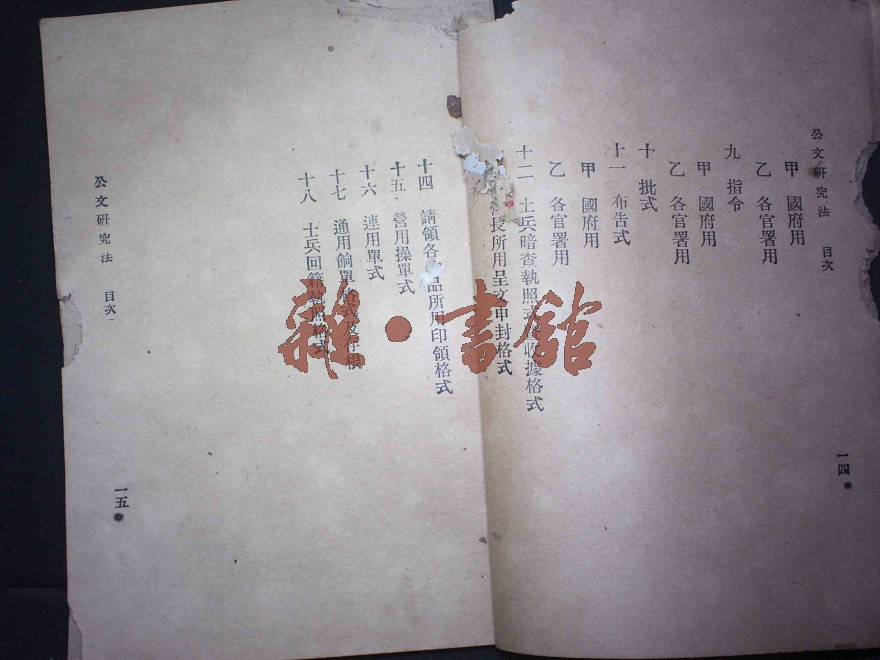 公文研究法 目次
甲 國府用
乙 各官署用
九 指令
甲 國府用
乙 各官署用
十 批式
十一 布告式
甲 國府用
乙 各官署用
十二 士兵暗查執照 收據格式
長所用呈文申封格式
一四
十四 請領各 品所用印領格式
十五 營用操單式
十六 連用單式
十七 通用餉單格式及存根
十八 士兵回籍執照格式
公文研究法 目次
一五
雜·書館